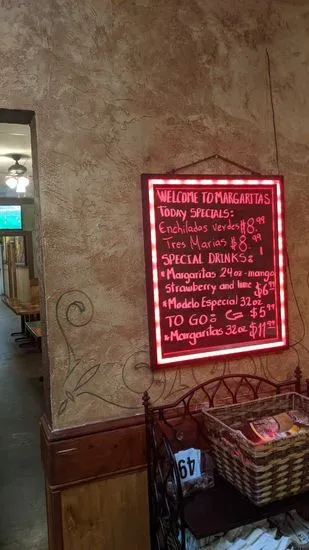 WELCOME TO MARGARITAS
TODAY SPECIALS:
Enchiladas verdes $8.99
Tres Marias $8.99
SPECIAL DRINKS:
*Margaritas 24oz-mango
strawberry and lime $6.99
*Modelo Especial 32oz
TO GO: $5.99
*Margaritas 32oz $11.99
49